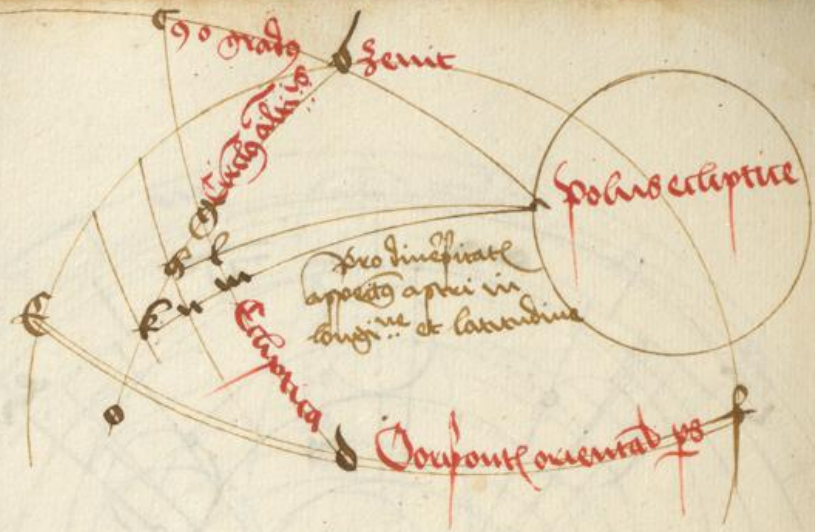 c
90 gradus
b zenit
Circulus altitudinis
polus ecliptice
g
h l
k n m
pro diversitate
aspectus astri in
longitudine et latitudine
e
Ecliptica
o
d
Orizontis orientalis pars
f